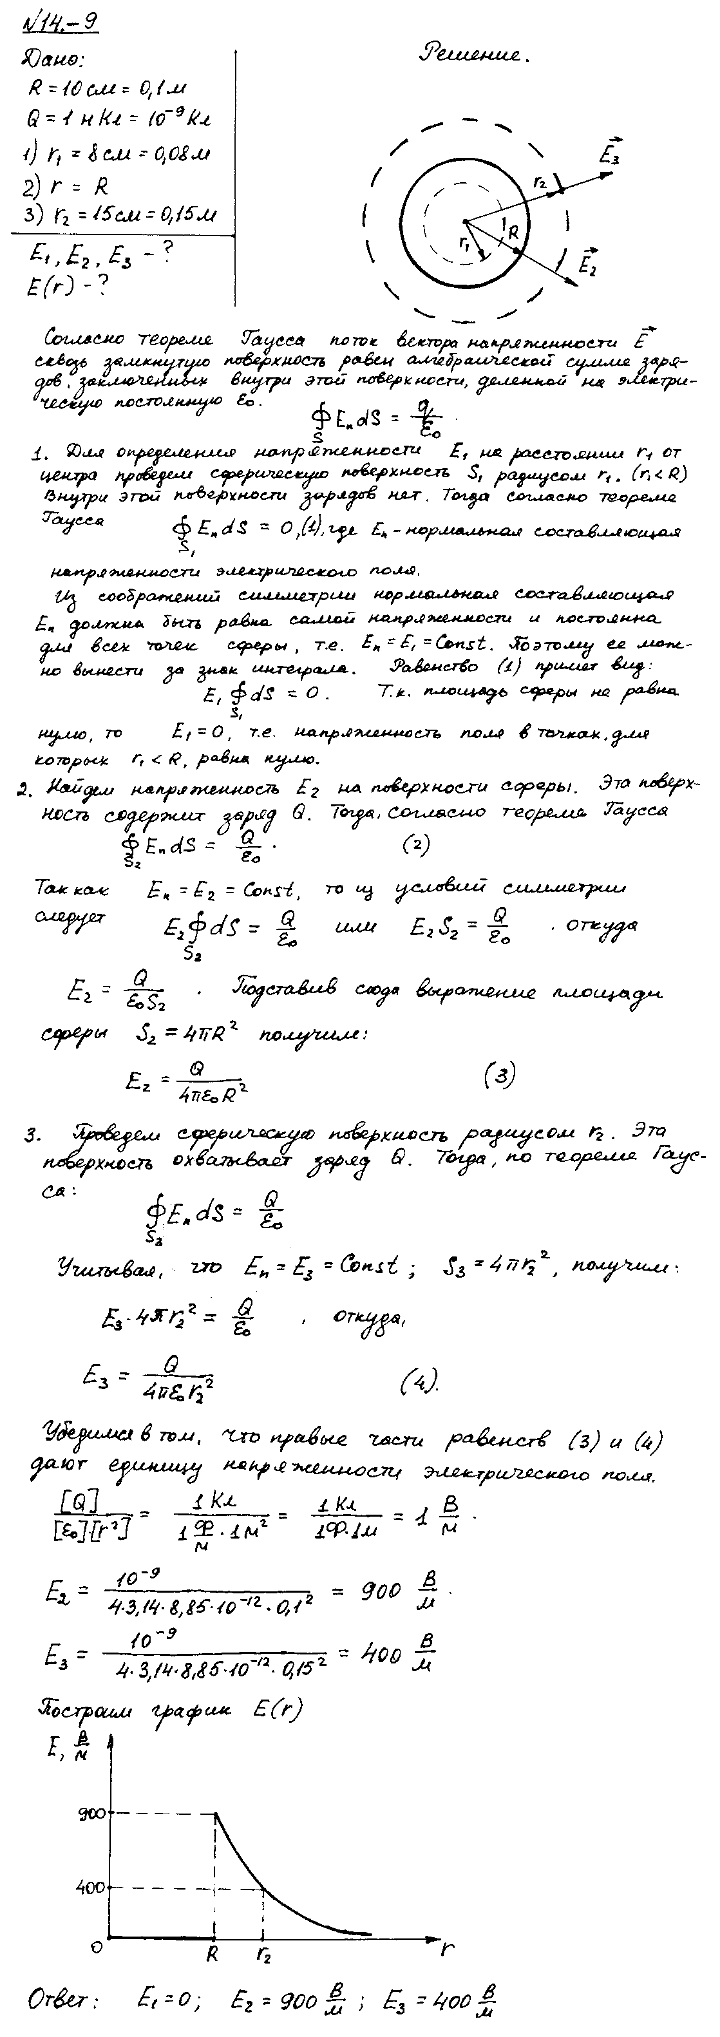 №14.-9
Дано:
R = 10 см = 0,1 м
Q = 1 нКл = 10⁻⁹ Кл
1) r₁ = 8 см = 0,08 м
2) r = R
3) r₂ = 15 см = 0,15 м
E₁, E₂, E₃ - ?
E(r) - ?
Решение.
E₃
r₂
R
r₁
E₂
Согласно теореме Гаусса поток вектора напряженности E
сквозь замкнутую поверхность равен алгебраической сумме заря-
дов, заключенных внутри этой поверхности, деленной на электри-
ческую постоянную ε₀.
∮ₛ EₙdS = q/ε₀.
1. Для определения напряженности E₁ на расстоянии r₁ от
центра проведем сферическую поверхность S₁ радиусом r₁. (r₁ < R)
Внутри этой поверхности зарядов нет. Тогда согласно теореме
Гаусса ∮S₁ EₙdS = 0, (1), где Eₙ - нормальная составляющая
напряженности электрического поля.
Из соображений симметрии нормальная составляющая
Eₙ должна быть равна самой напряженности и постоянна
для всех точек сферы, т.е. Eₙ = E₁ = Const. Поэтому ее мож-
но вынести за знак интеграла. Равенство (1) примет вид:
E₁ ∮S₁ dS = 0. Т.к. площадь сферы не равна
нулю, то E₁ = 0, т.е. напряженность поля в точках, для
которых r₁ < R, равна нулю.
2. Найдем напряженность E₂ на поверхности сферы. Эта поверх-
ность содержит заряд Q. Тогда, согласно теореме Гаусса
∮S₂ EₙdS = Q/ε₀. (2)
Так как Eₙ = E₂ = Const, то из условий симметрии
следует E₂ ∮S₂ dS = Q/ε₀ или E₂S₂ = Q/ε₀. откуда
E₂ = Q/(ε₀S₂). Подставив сюда выражение площади
сферы S₂ = 4πR² получим:
E₂ = Q/(4πε₀R²) (3)
3. Проведем сферическую поверхность радиусом r₂. Эта
поверхность охватывает заряд Q. Тогда, по теореме Гаус-
са:
∮S₂ EₙdS = Q/ε₀
Учитывая, что Eₙ = E₃ = Const; S₃ = 4πr₂², получим:
E₃·4πr₂² = Q/ε₀, откуда,
E₃ = Q/(4πε₀r₂²) (4).
Убедимся в том, что правые части равенств (3) и (4)
дают единицу напряженности электрического поля.
[Q]/([ε₀][r²]) = 1 Кл/(1 Ф/м · 1 м²) = 1 Кл/(1Ф·1м) = 1 В/м.
E₂ = 10⁻⁹/(4·3,14·8,85·10⁻¹²·0,1²) = 900 В/м.
E₃ = 10⁻⁹/(4·3,14·8,85·10⁻¹²·0,15²) = 400 В/м
Построим график E(r)
E, В/м
900
400
0
R
r₂
r
Ответ: E₁ = 0; E₂ = 900 В/м; E₃ = 400 В/м